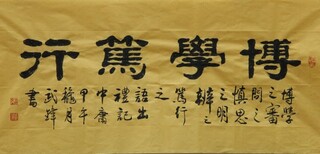 博學篤行
博學
之審
問之
慎思
之明
辨之
篤行
之
語出
禮記
中庸
甲午
臘月
武緯
書